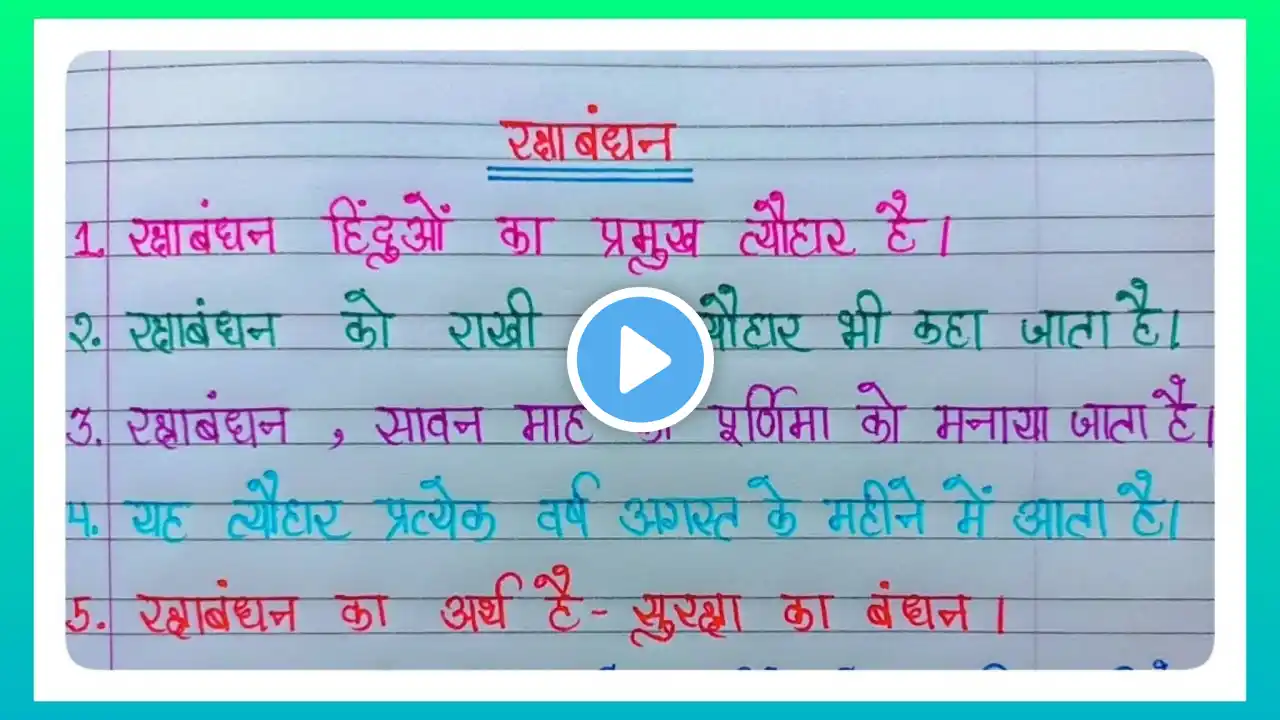 रक्षाबंधन
1. रक्षाबंधन हिंदुओं का प्रमुख त्यौहार है।
२. रक्षाबंधन को राखी भी कहा जाता है।
3. रक्षाबंधन , सावन माह पूर्णिमा को मनाया जाता है।
4. यह त्यौहार प्रत्येक वर्ष अगस्त के महीने में आता है।
5. रक्षाबंधन का अर्थ है - सुरक्षा का बंधन।